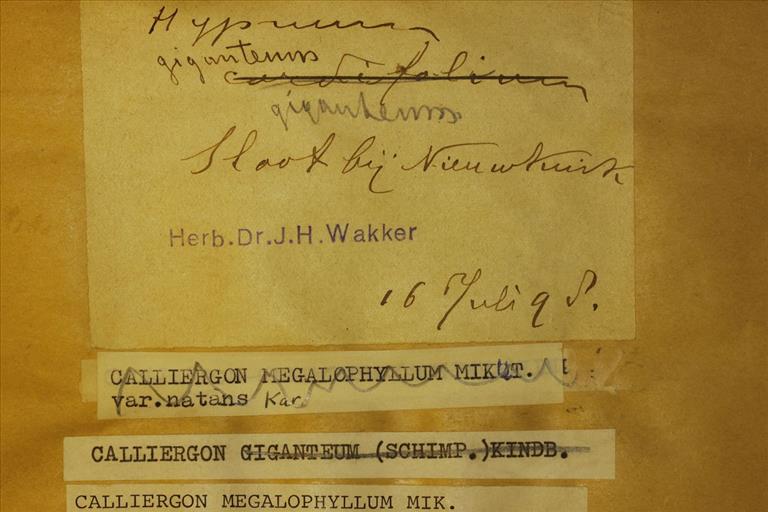 Hypnum
giganteum
cordifolium
giganteum
Sloot bij Nieuwkuik
Herb.Dr.J.H.Wakker
16 Juli 98.
CALLIERGON MEGALOPHYLLUM MIKUT.
var.natans Kar
CALLIERGON GIGANTEUM (SCHIMP.)KINDB.
CALLIERGON MEGALOPHYLLUM MIK.